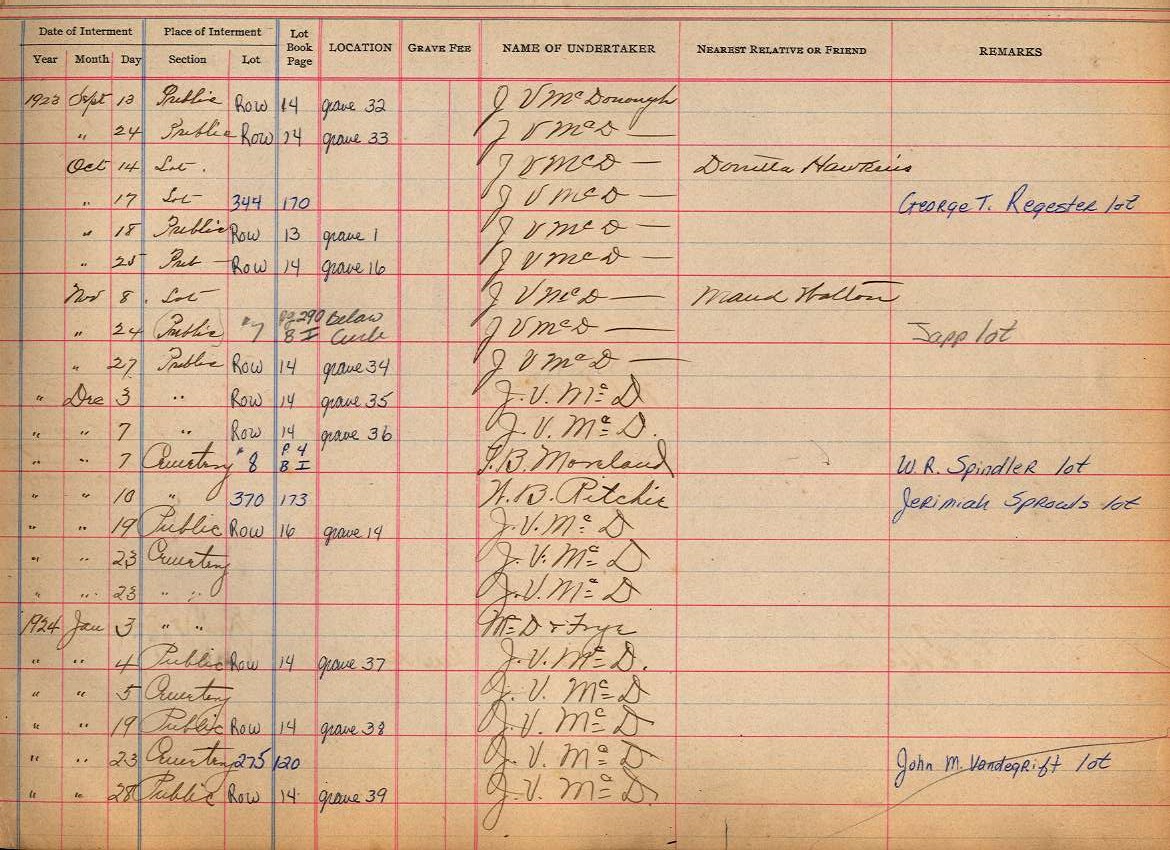 Date of Interment Place of Interment Lot Book Page LOCATION GRAVE FEE NAME OF UNDERTAKER NEAREST RELATIVE OR FRIEND REMARKS
Year Month Day Section Lot
1923 Sept 13 Public Row 14 grave 32 J V McDonough
" 24 Public Row 14 grave 33 J V McD —
Oct 14 Lot . J V McD — Hawkins
" 17 Lot 344 170 J V McD — George T. Regester lot
" 18 Public Row 13 grave 1 J V McD —
" 25 Pub — Row 14 grave 16 J V McD —
Nov 8 . Lot J V McD — Maud Walton
" 24 (Public) #7 pg 290 B I Below Curb J V McD — Sapp lot
" 27 Public Row 14 grave 34 J V McD —
" Dec 3 " Row 14 grave 35 J. V. McD
" " 7 " Row 14 grave 36 J. V. McD.
" " 7 Cemetery # 8 P 4 B I T. B. Moreland W. R. Spindler lot
" " 10 " 370 173 W. B. Ritchie Jerimiah Sprowls lot
" " 19 Public Row 16 grave 14 J. V. McD
" " 23 Cemetery J. V. McD
" " 23 " " J. V. McD
1924 Jan 3 " " McD & Frye
" " 4 Public Row 14 grave 37 J. V. McD.
" " 5 Cemetery J. V. McD
" " 19 Public Row 14 grave 38 J. V. McD
" " 23 Cemetery 275 120 J. V. McD John M. Vandegrift lot
" " 28 Public Row 14 grave 39 J. V. McD.